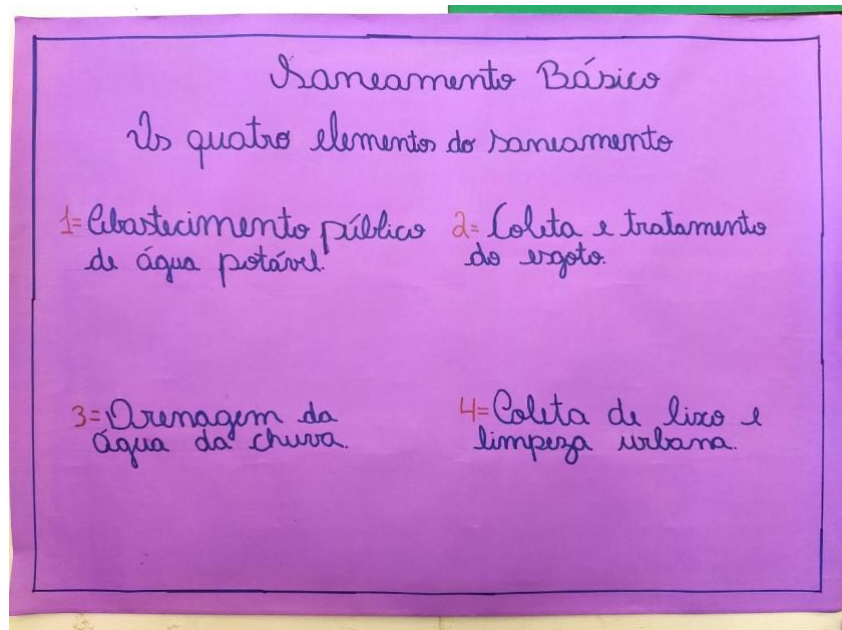 Saneamento Básico
Os quatro elementos do saneamento
1= Abastecimento público
de água potável.
2= Coleta e tratamento
do esgoto.
3= Drenagem da
água da chuva.
4= Coleta de lixo e
limpeza urbana.